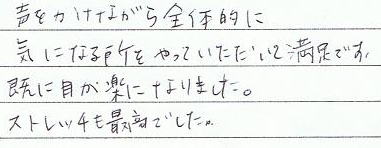 声をかけながら全体的に
気になる所をやっていただいて満足です。
既に目が楽になりました。
ストレッチも最高でした。